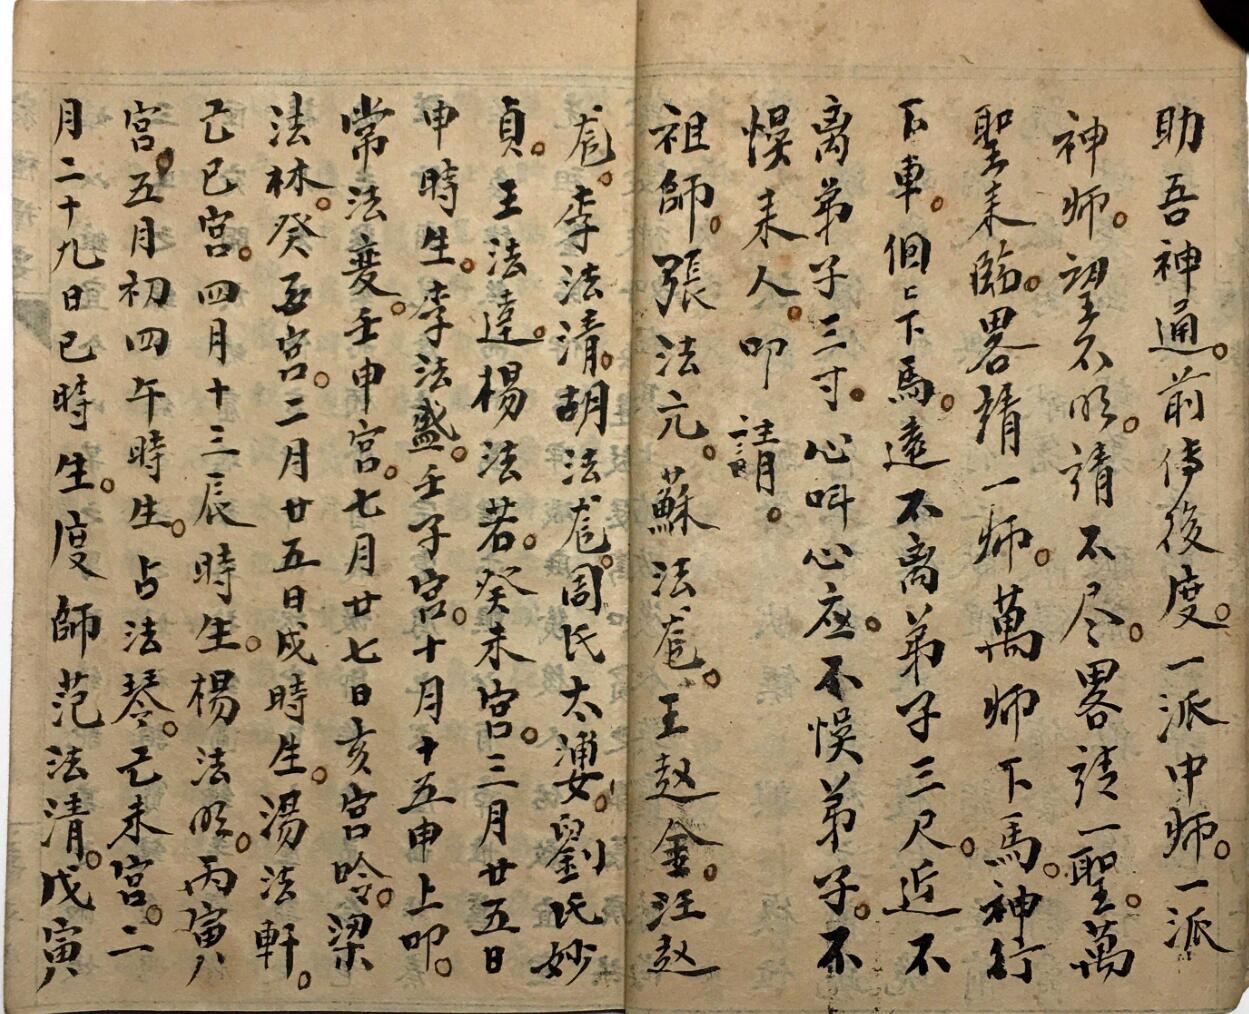 助吾神通。前傳後度。一派中师。一派
神师。望望不明。請不尽。畧請一聖。萬
聖来臨。畧請一师。萬师下馬。神行
下車。個上下馬。遠不离弟子三尺。近不
离弟子三寸。心呌心应。不悞弟子。不
悞来人。叩請。
祖師。張法元。蘇法。王趙金。汪趙
李法清。胡法。周氏太。劉氏妙
貞。王法達。楊法若。癸未宮。三月廿五日
申時生。李法盛。壬子宮。十月十五申上叩。
常法变。壬申宮。七月廿七日亥宮吟。梁
法林。癸丑宮。二月廿五日戌時生。湯法軒。
己巳宮。四月十三辰時生。楊法明。丙寅
宮。五月初四午時生。占法琴。己未宮。二
月二十九日巳時生。度師范法清。戊寅